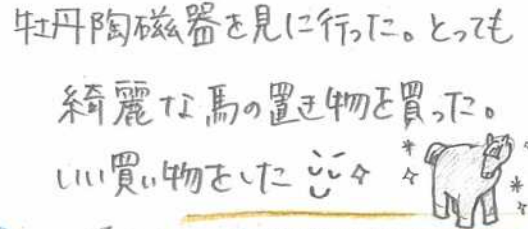 牡丹陶磁器を見に行った。とっても
綺麗な馬の置き物を買った。
いい買い物をした